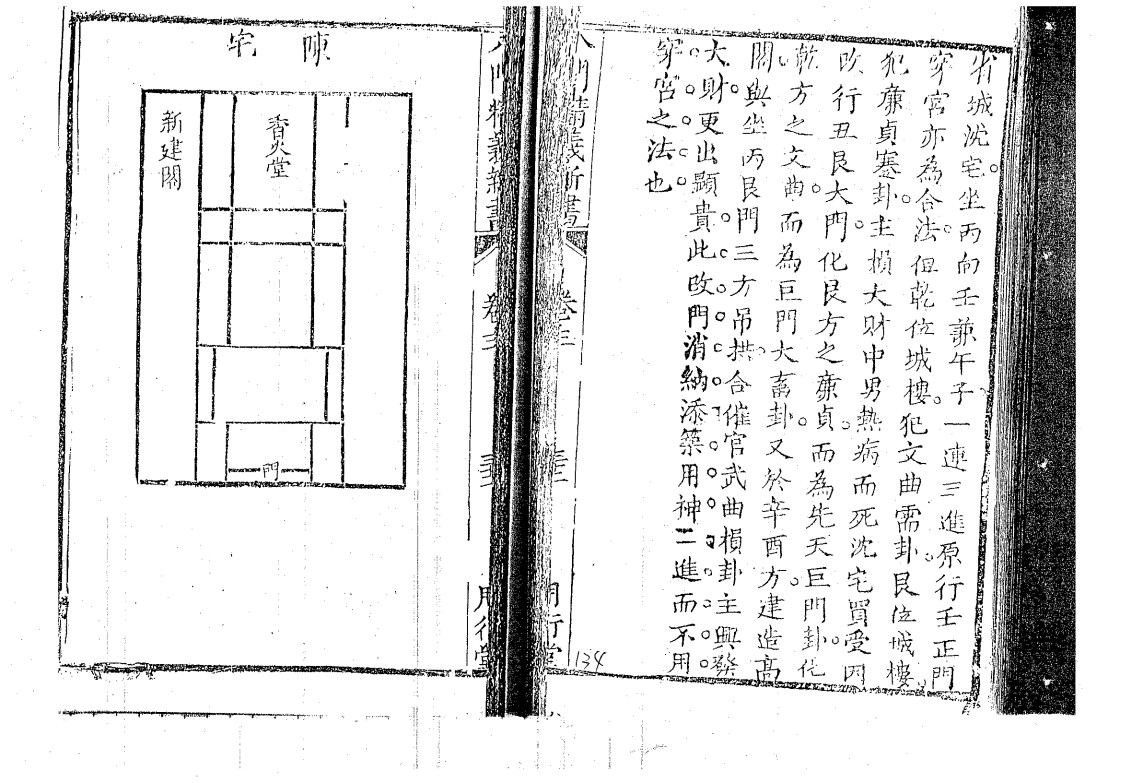 省城沈宅。坐丙向壬兼午子一連三進原行壬正門
穿宮亦為合法。但乾位城樓。犯文曲需卦。艮位城樓。
犯廉貞蹇卦。主損大財中男熱病而死沈宅買受因
改行丑艮大門。化艮方之廉貞。而為先天巨門卦。化
乾方之文曲。而為巨門大畜卦。又於辛酉方。建造高
閣。與坐丙艮門三方吊拱。合催官武曲損卦主興發
大財。更出顯貴。此改門消納添築用神二進而不用
穿宮之法也
八門精義新書
卷
用行堂
134
八門精義新書
卷
用行堂
陳宅
香火堂
新建閣
門